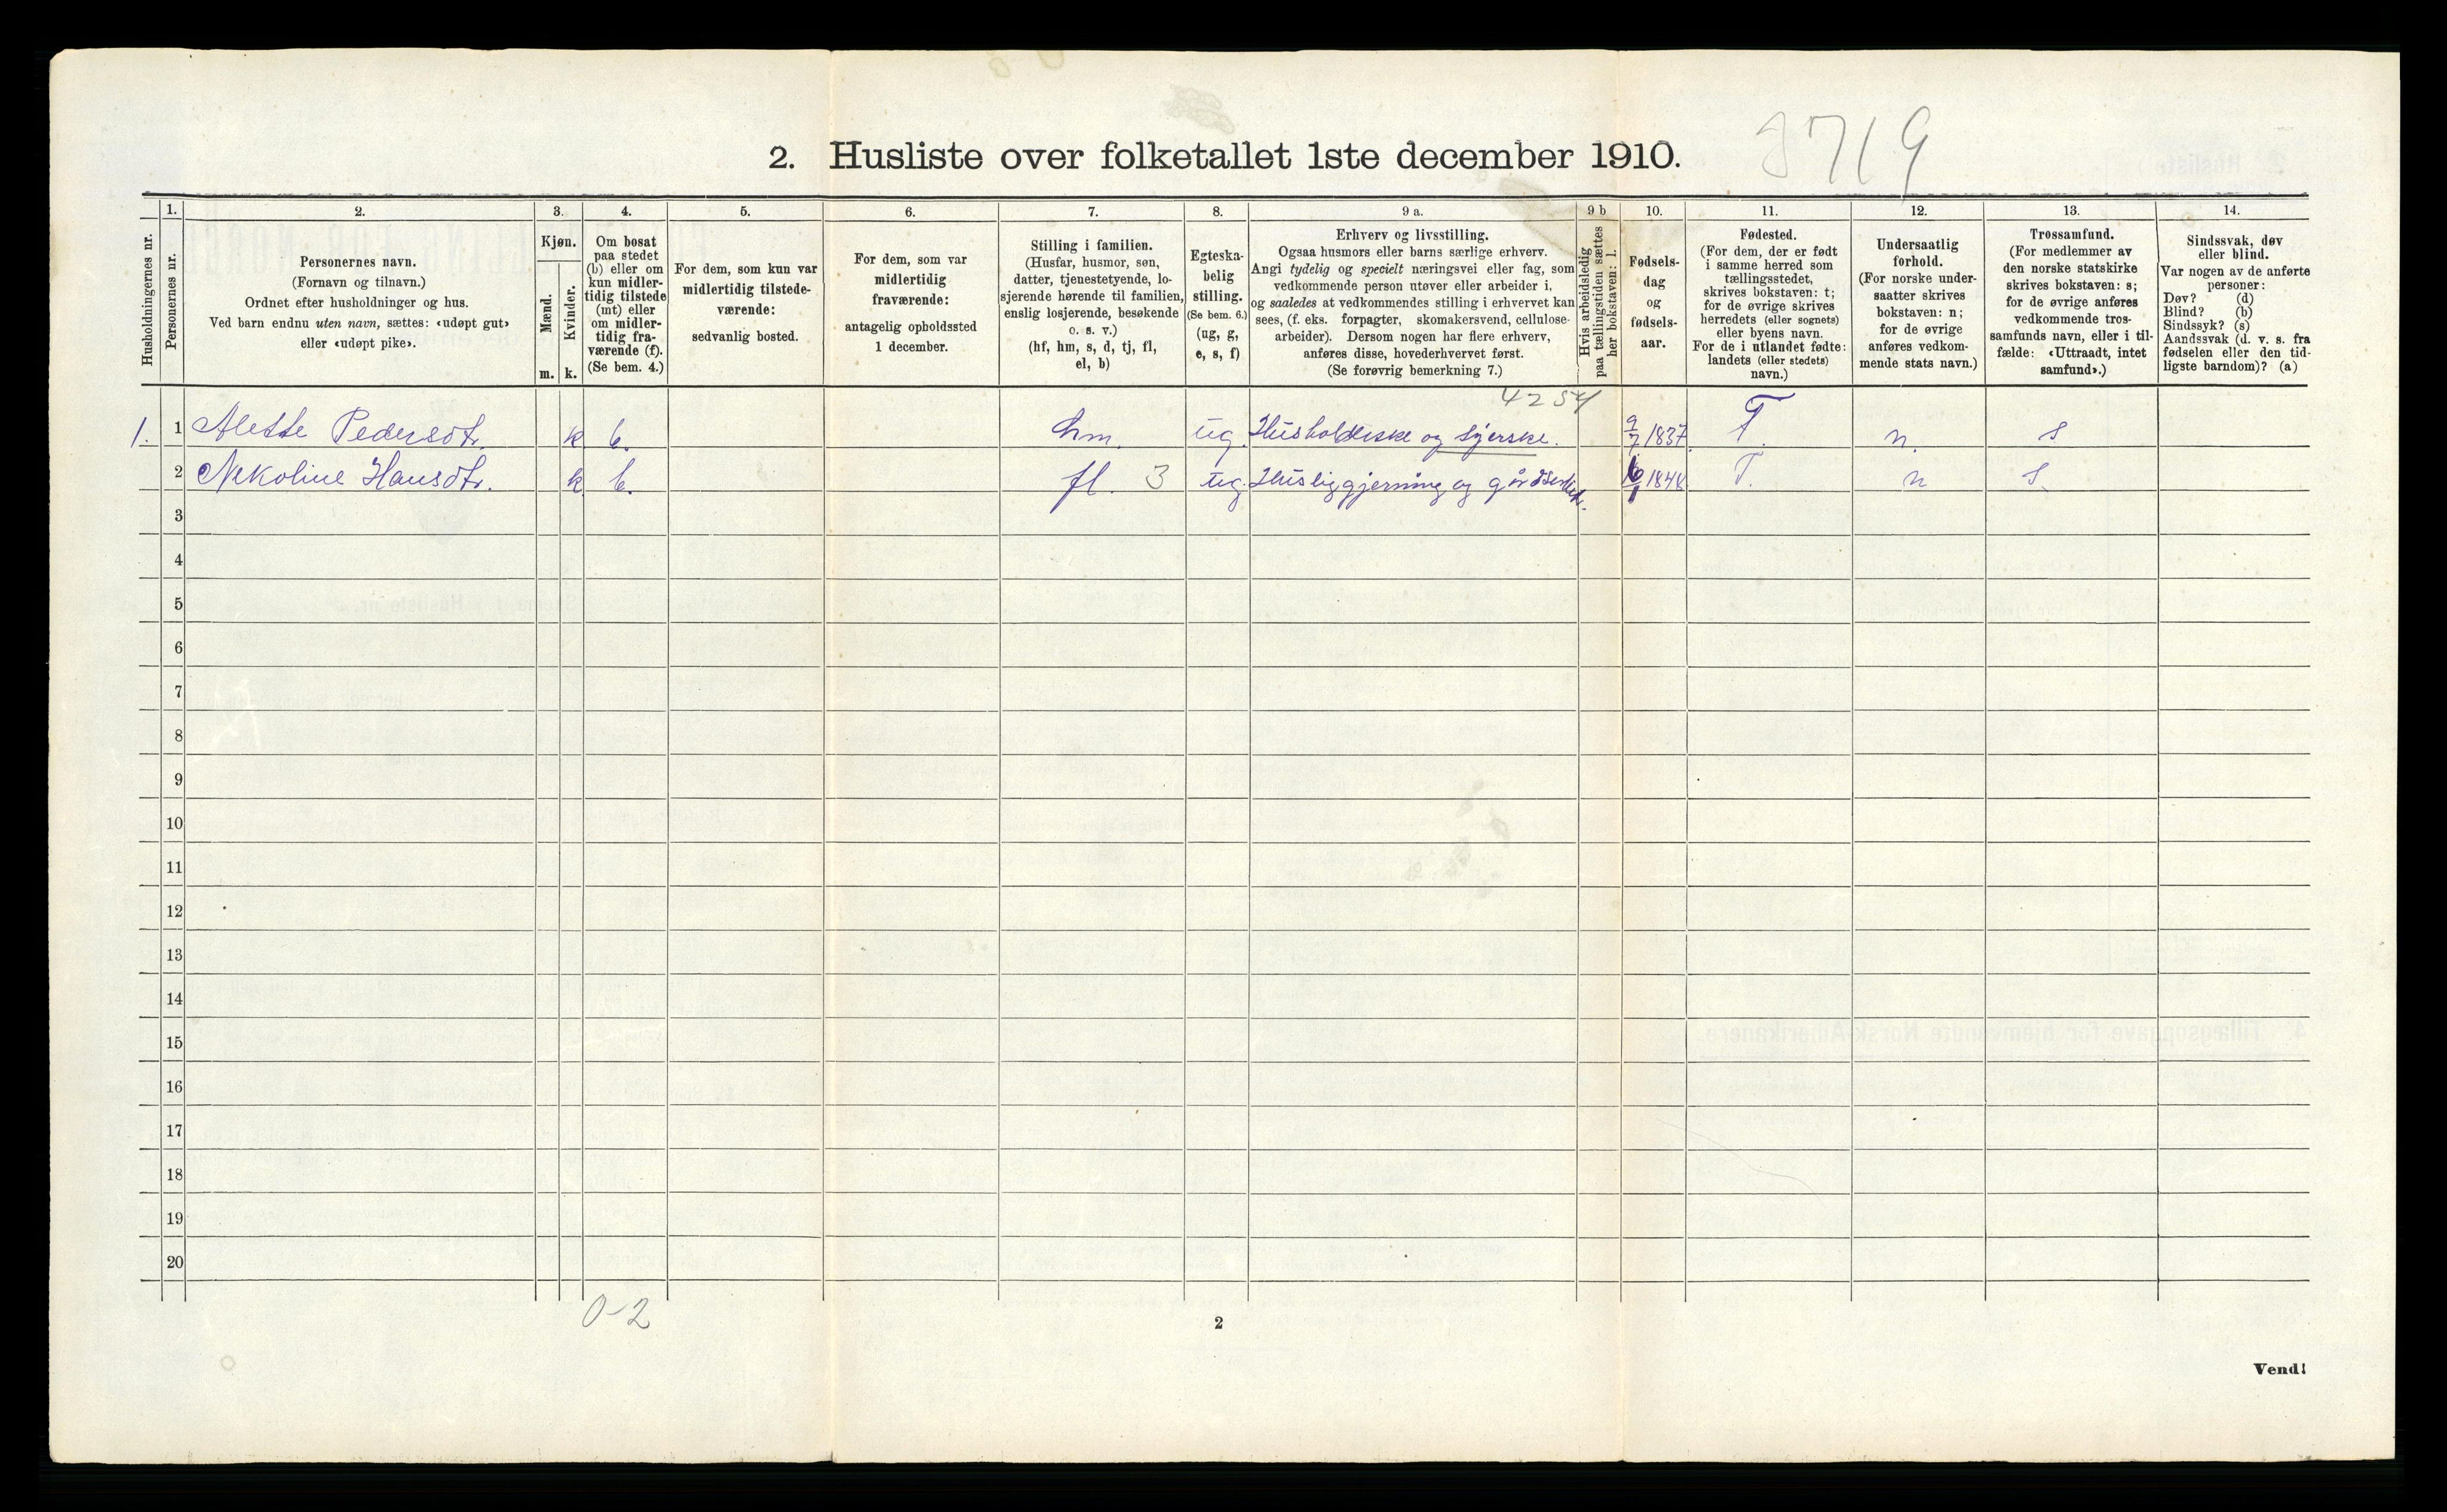 3719
2. Husliste over folketallet 1ste december 1910.
Husholdningernes nr.
1. Personernes nr.
2. Personernes navn.
(Fornavn og tilnavn.)
Ordnet efter husholdninger og hus.
Ved barn endnu uten navn, sættes: «udøpt gut»
eller «udøpt pike».
3. Kjøn.
Mænd. m.
Kvinder. k.
4. Om bosat
paa stedet
(b) eller om
kun midler-
tidig tilstede
(mt) eller
om midler-
tidig fra-
værende (f).
(Se bem. 4.)
5. For dem, som kun var
midlertidig tilstede-
værende:
sedvanlig bosted.
6. For dem, som var
midlertidig
fraværende:
antagelig opholdssted
1 december.
7. Stilling i familien.
(Husfar, husmor, søn,
datter, tjenestetyende, lo-
sjerende hørende til familien,
enslig losjerende, besøkende
o. s. v.)
(hf, hm, s, d, tj, fl,
el, b)
8. Egteska-
belig
stilling.
(Se bem. 6.)
(ug, g,
e, s, f)
9 a. Erhverv og livsstilling.
Ogsaa husmors eller barns særlige erhverv.
Angi tydelig og specielt næringsvei eller fag, som
vedkommende person utøver eller arbeider i,
og saaledes at vedkommendes stilling i erhvervet kan
sees, (f. eks. forpagter, skomakersvend, cellulose-
arbeider). Dersom nogen har flere erhverv,
anføres disse, hovederhvervet først.
(Se forøvrig bemerkning 7.)
9 b Hvis arbeidsledig
paa tællingstiden sættes
her bokstaven: l.
10. Fødsels-
dag
og
fødsels-
aar.
11. Fødested.
(For dem, der er født
i samme herred som
tællingsstedet,
skrives bokstaven: t;
for de øvrige skrives
herredets (eller sognets)
eller byens navn.
For de i utlandet fødte:
landets (eller stedets)
navn.)
12. Undersaatlig
forhold.
(For norske under-
saatter skrives
bokstaven: n;
for de øvrige
anføres vedkom-
mende stats navn.)
13. Trossamfund.
(For medlemmer av
den norske statskirke
skrives bokstaven: s;
for de øvrige anføres
vedkommende tros-
samfunds navn, eller i til-
fælde: «Uttraadt, intet
samfund».)
14. Sindssvak, døv
eller blind.
Var nogen av de anførte
personer:
Døv? (d)
Blind? (b)
Sindssyk? (s)
Aandssvak (d. v. s. fra
fødselen eller den tid-
ligste barndom)? (a)
4254
1. 1 Alette Pedersdtr. k b. hm. ug. Husholderske og syerske. 9/7 1837 T. n. s
2 Nekoline Hansdtr. k b. fl. 3 ug. Huslig gjerning og 1848 T. n s.
3
4
5
6
7
8
9
10
11
12
13
14
15
16
17
18
19
20
0-2
2
Vend!